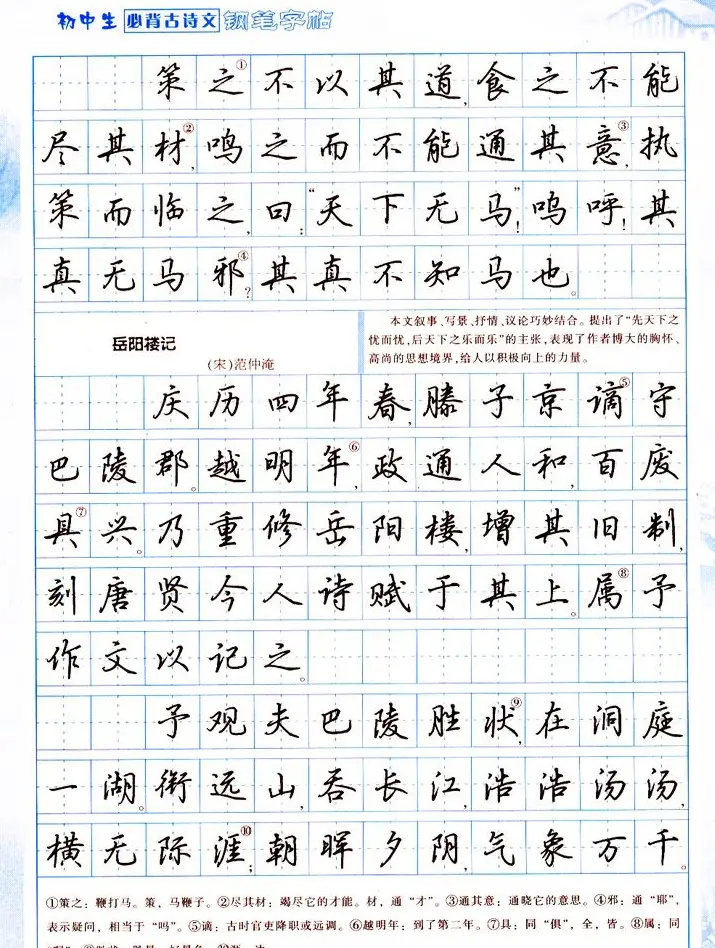 初中生 必背古诗文 钢笔字帖
策之①不以其道,食之不能
尽其材②,鸣之而不能通其意③,执
策而临之,曰:“天下无马!”呜呼!其
真无马邪④?其真不知马也。
岳阳楼记
(宋)范仲淹
本文叙事、写景、抒情、议论巧妙结合。提出了“先天下之
忧而忧,后天下之乐而乐”的主张,表现了作者博大的胸怀、
高尚的思想境界,给人以积极向上的力量。
庆历四年春,滕子京谪⑤守
巴陵郡。越明年⑥,政通人和,百废
具⑦兴。乃重修岳阳楼,增其旧制,
刻唐贤今人诗赋于其上。属⑧予
作文以记之。
予观夫巴陵胜状⑨,在洞庭
一湖。衔远山,吞长江,浩浩汤汤,
横无际涯⑩;朝晖夕阴,气象万千。
①策之:鞭打马。策,马鞭子。②尽其材:竭尽它的才能。材,通“才”。③通其意:通晓它的意思。④邪:通“耶”,
表示疑问,相当于“吗”。⑤谪:古时官吏降职或远调。⑥越明年:到了第二年。⑦具:同“俱”,全,皆。⑧属:同